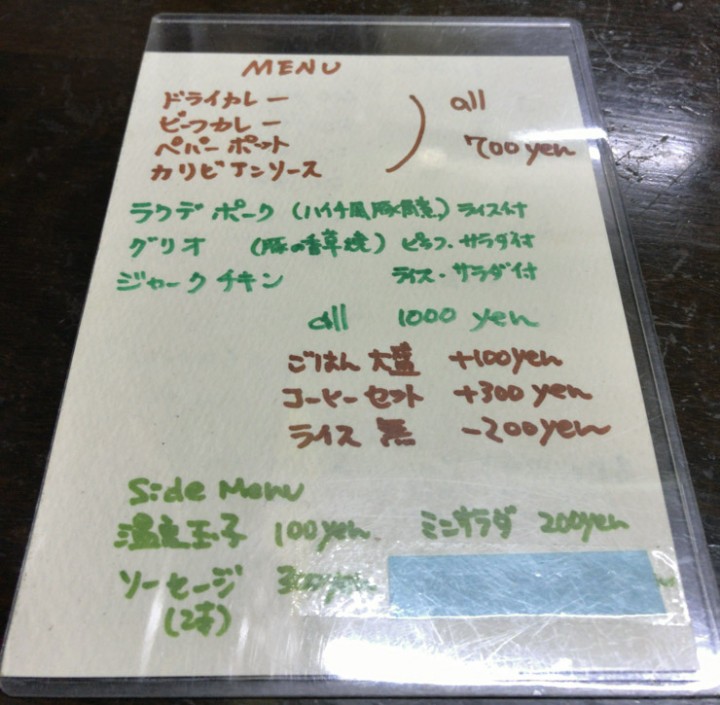 MENU
ドライカレー
ビーフカレー
ペパーポット
カリビアンソース
all
700yen
ラクデポーク (ハイチ風豚角煮) ライス付
グリオ (豚の香草焼) ピラフ・サラダ付
ジャークチキン ライス・サラダ付
all 1000 yen
ごはん 大盛 +100yen
コーヒーセット +300yen
ライス 無 -200yen
Side Menu
温泉玉子 100yen ミニサラダ 200yen
ソーセージ 300yen
(2本)